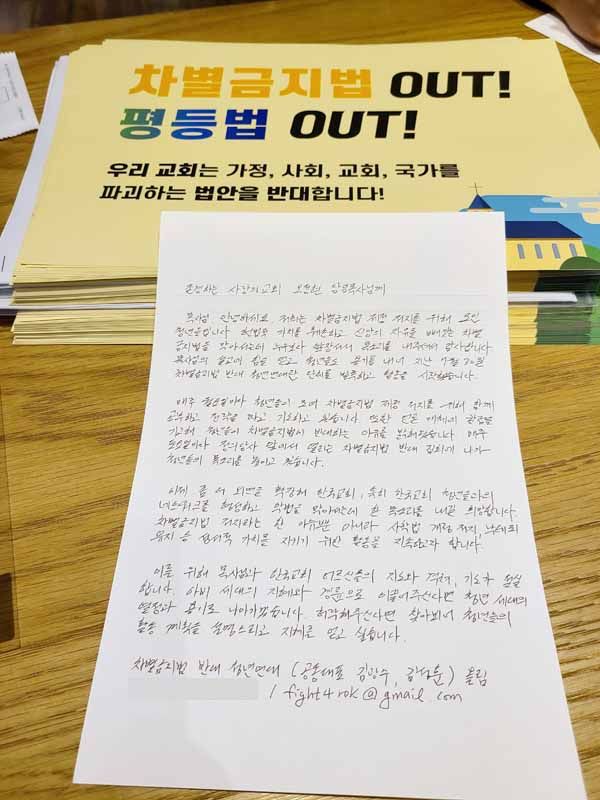 차별금지법 OUT!
평등법 OUT!
우리 교회는 가정, 사회, 교회, 국가를
파괴하는 법안을 반대합니다!
존경하는 사랑의교회 오정현 담임목사님께
목사님 안녕하세요 저희는 차별금지법 제정 저지를 위해 모인
청년들입니다 헌법적 가치를 훼손하고 신앙의 자유를 빼앗는 차별
금지법을 막아서는데 누구보다 앞장서서 목소리를 내주셔서 감사합니다
목사님의 설교에 힘을 얻고 청년들도 용기를 내어 지난 7월 30일
차별금지법 반대 청년연대란 단체를 발족하고 활동을 시작했습니다.
매주 월요일마다 청년들이 모여 차별금지법 제정 저지를 위해 함께
공부하고 전략을 짜고 기도하고 있습니다 또한 언론 매체의
청년들이 차별금지법을 반대하는 이유를 밝혀왔습니다 매주
국회의사당 앞에서 열리는 차별금지법 반대 집회에 나가
청년들의 목소리를 높이고 있습니다.
이제 좀 더 외연을 확장해 한국교회, 특히 한국교회 청년들과의
네트워크를 형성하고 악법을 막아내는데 한 목소리를 내길 희망합니다
차별금지법 저지라는 한 이슈뿐 아니라 사학법 개정 저지, 낙태죄
유지 등 성경적 가치를 지키기 위한 활동을 지속하고자 합니다.
이를 위해 목사님과 한국교회 어르신들의 지도와 격려, 기도가 절실
합니다. 아비 세대의 지혜와 경륜으로 이끌어주신다면 청년 세대의
열정과 용기로 나아가겠습니다. 허락해주신다면 찾아뵈어 청년들의
활동 계획을 설명드리고 지혜를 얻고 싶습니다.
차별금지법 반대 청년연대 (공동대표 김광수, 김성훈) 올림
/ fight4rok@gmail.com